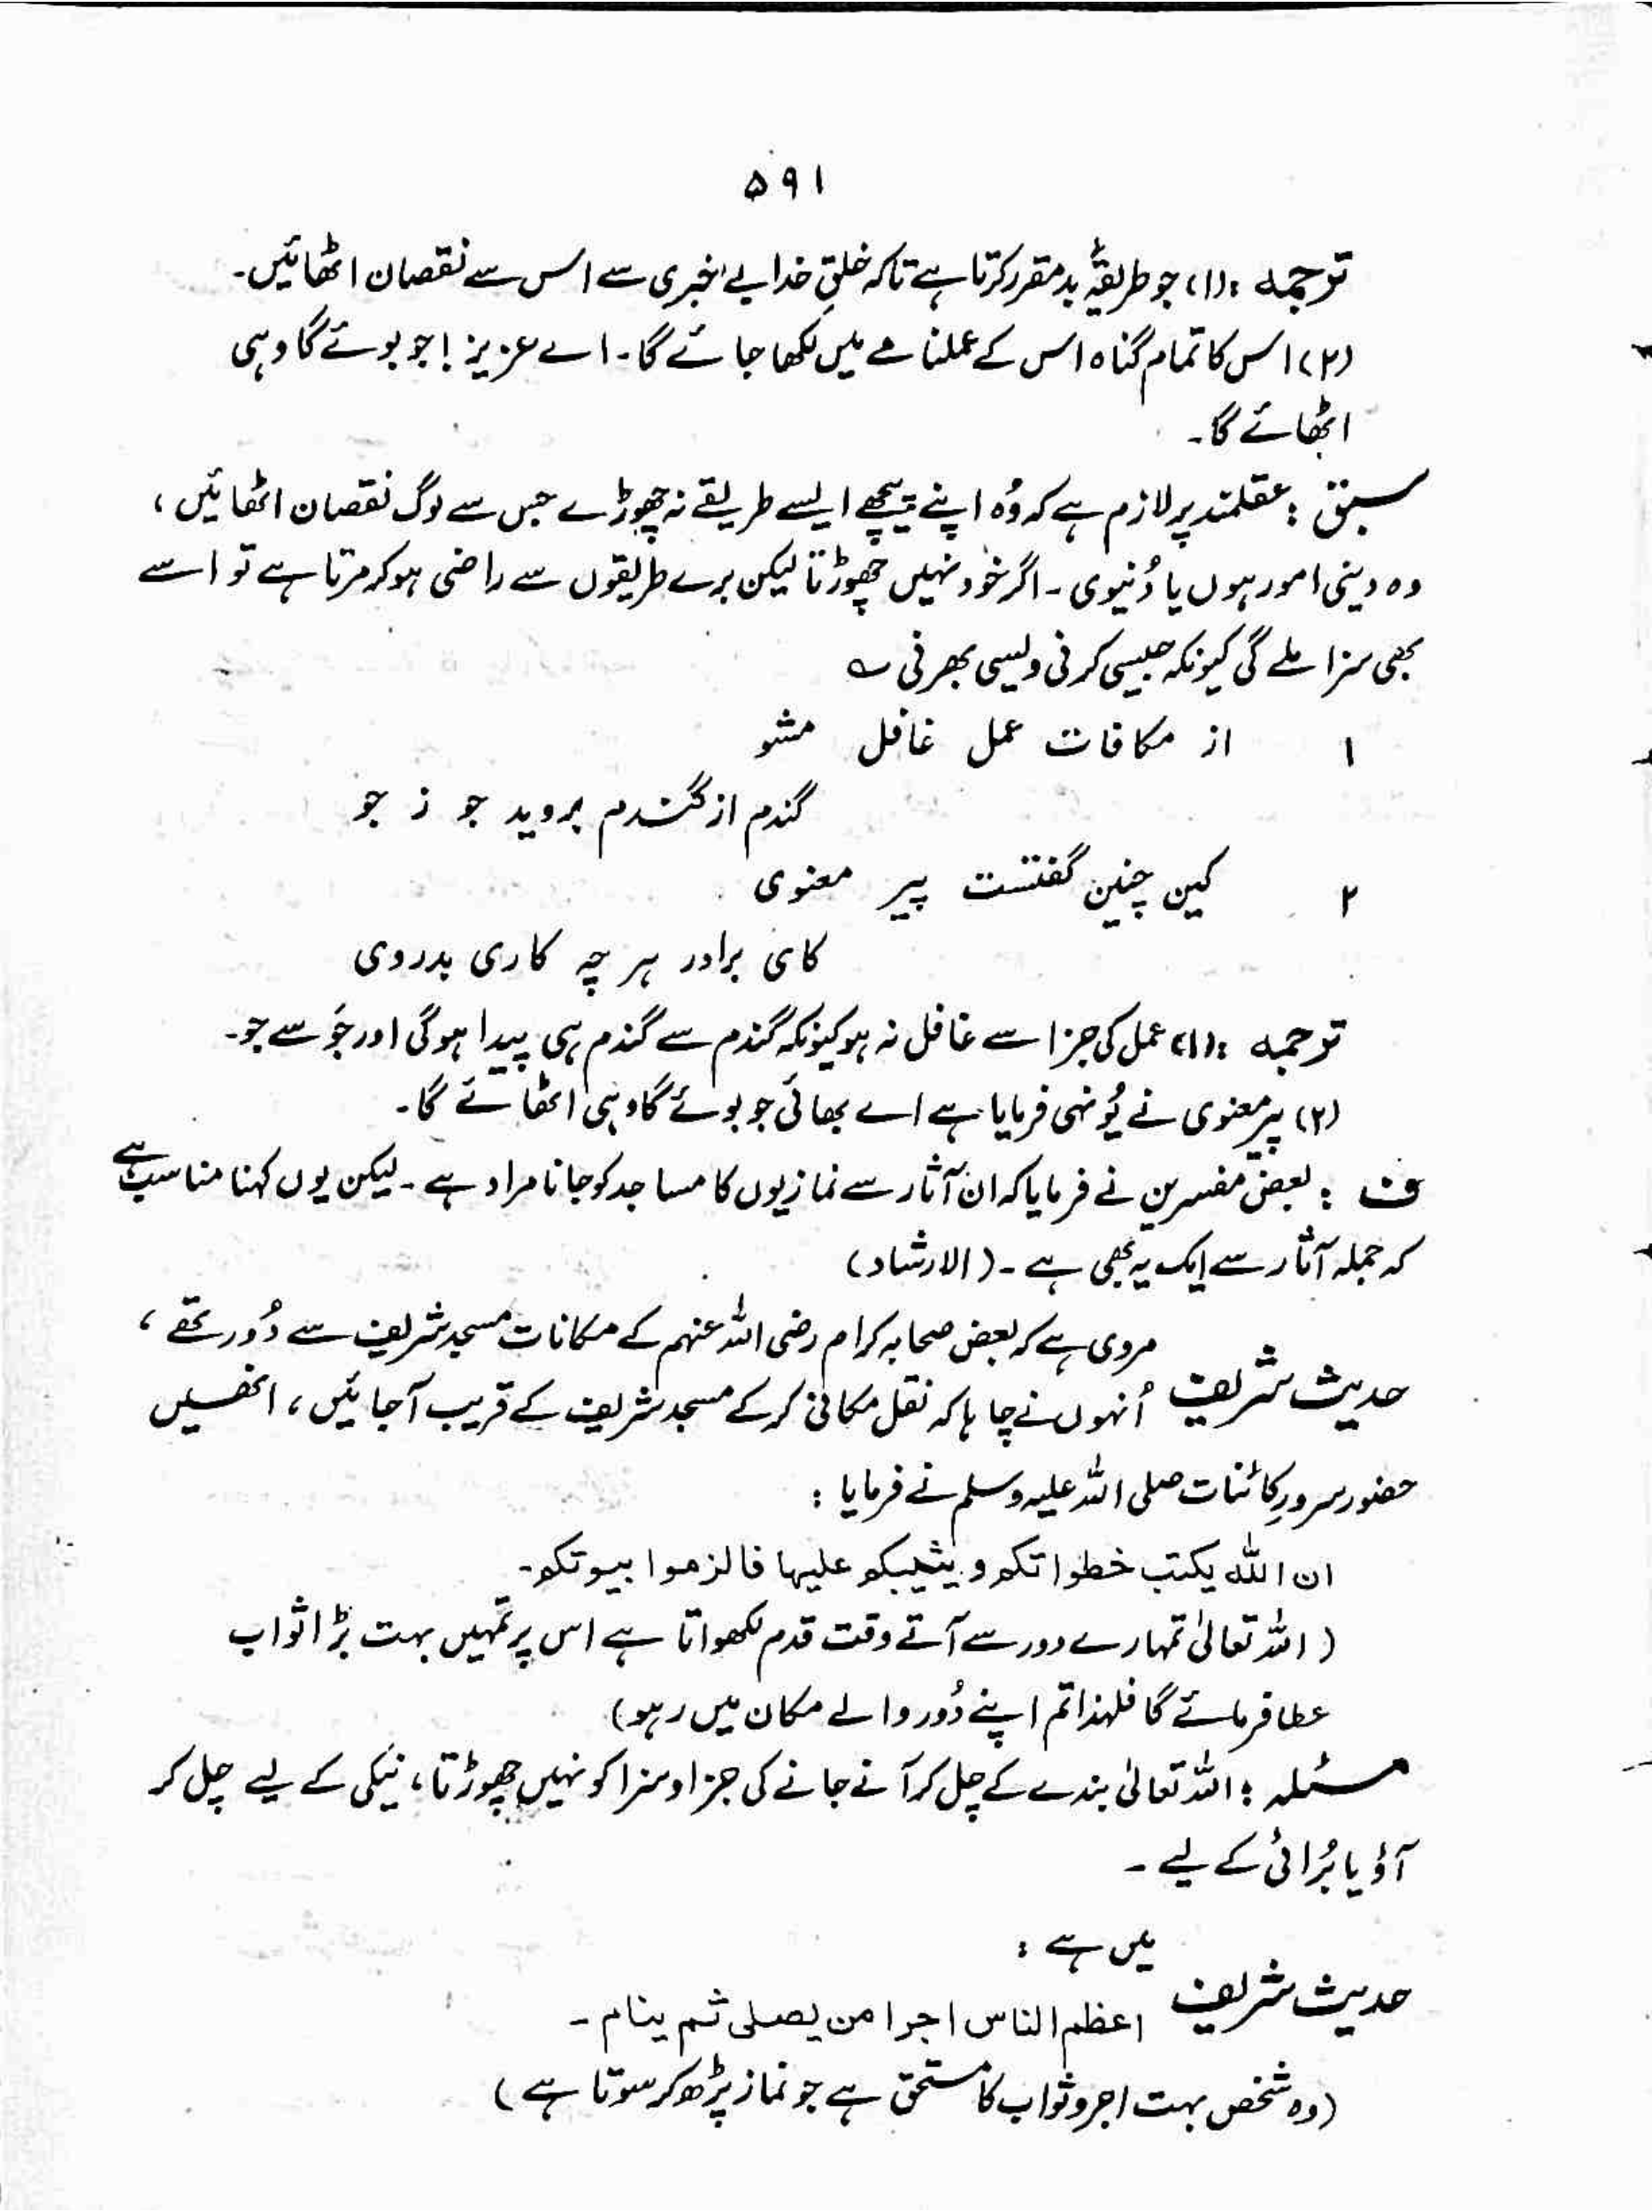 ۵۹۱
ترجمہ : (۱) جو طریقۂ بد مقرر کرتا ہے تاکہ خلقِ خدا بے خبری سے اس سے نقصان اٹھائیں۔
(۲) اس کا تمام گناہ اس کے عملنامے میں لکھا جائے گا۔ اے عزیز! جو بوئے گا وہی
اٹھائے گا۔
سبق : عقلمند پر لازم ہے کہ وُہ اپنے پیچھے ایسے طریقے نہ چھوڑے جس سے لوگ نقصان اٹھائیں،
وہ دینی امور ہوں یا دُنیوی ۔ اگر خود نہیں چھوڑتا لیکن برے طریقوں سے راضی ہو کر مرتا ہے تو اسے
بھی سزا ملے گی کیونکہ جیسی کرنی ویسی بھرنی ؎
۱ از مکافات عمل غافل مشو
گندم از گندم بروید جو ز جو
۲ کین چنین گفتست پیر معنوی
کای برادر ہر چہ کاری بدروی
ترجمہ : (۱) عمل کی جزا سے غافل نہ ہو کیونکہ گندم سے گندم ہی پیدا ہوگی اور جَو سے جو۔
(۲) پیر معنوی نے یُونہی فرمایا ہے اے بھائی جو بوئے گا وہی اٹھائے گا۔
ف : بعض مفسرین نے فرمایا کہ ان آثار سے نمازیوں کا مساجد کو جانا مراد ہے ۔ لیکن یوں کہنا مناسب ہے
کہ جملہ آثار سے ایک یہ بھی ہے ۔ (الارشاد)
مروی ہے کہ بعض صحابہ کرام رضی اللہ عنہم کے مکانات مسجد شریف سے دُور تھے ،
حدیث شریف اُنہوں نے چاہا کہ نقل مکانی کر کے مسجد شریف کے قریب آجائیں ، انھیں
حضور سرورِ کائنات صلی اللہ علیہ وسلم نے فرمایا :
ان اللہ یکتب خطواتکم و یثیبکم علیہا فالزموا بیوتکم۔
( اللہ تعالیٰ تمہارے دور سے آتے وقت قدم لکھواتا ہے اس پر تمہیں بہت بڑا ثواب
عطا فرمائے گا فلہذا تم اپنے دُور والے مکان میں رہو)
مسئلہ : اللہ تعالیٰ بندے کے چل کر آنے جانے کی جزا و سزا کو نہیں چھوڑتا، نیکی کے لیے چل کر
آؤ یا بُرائی کے لیے ۔
میں ہے :
حدیث شریف اعظم الناس اجرا من یصلی ثم ینام ۔
(وہ شخص بہت اجر و ثواب کا مستحق ہے جو نماز پڑھ کر سوتا ہے )